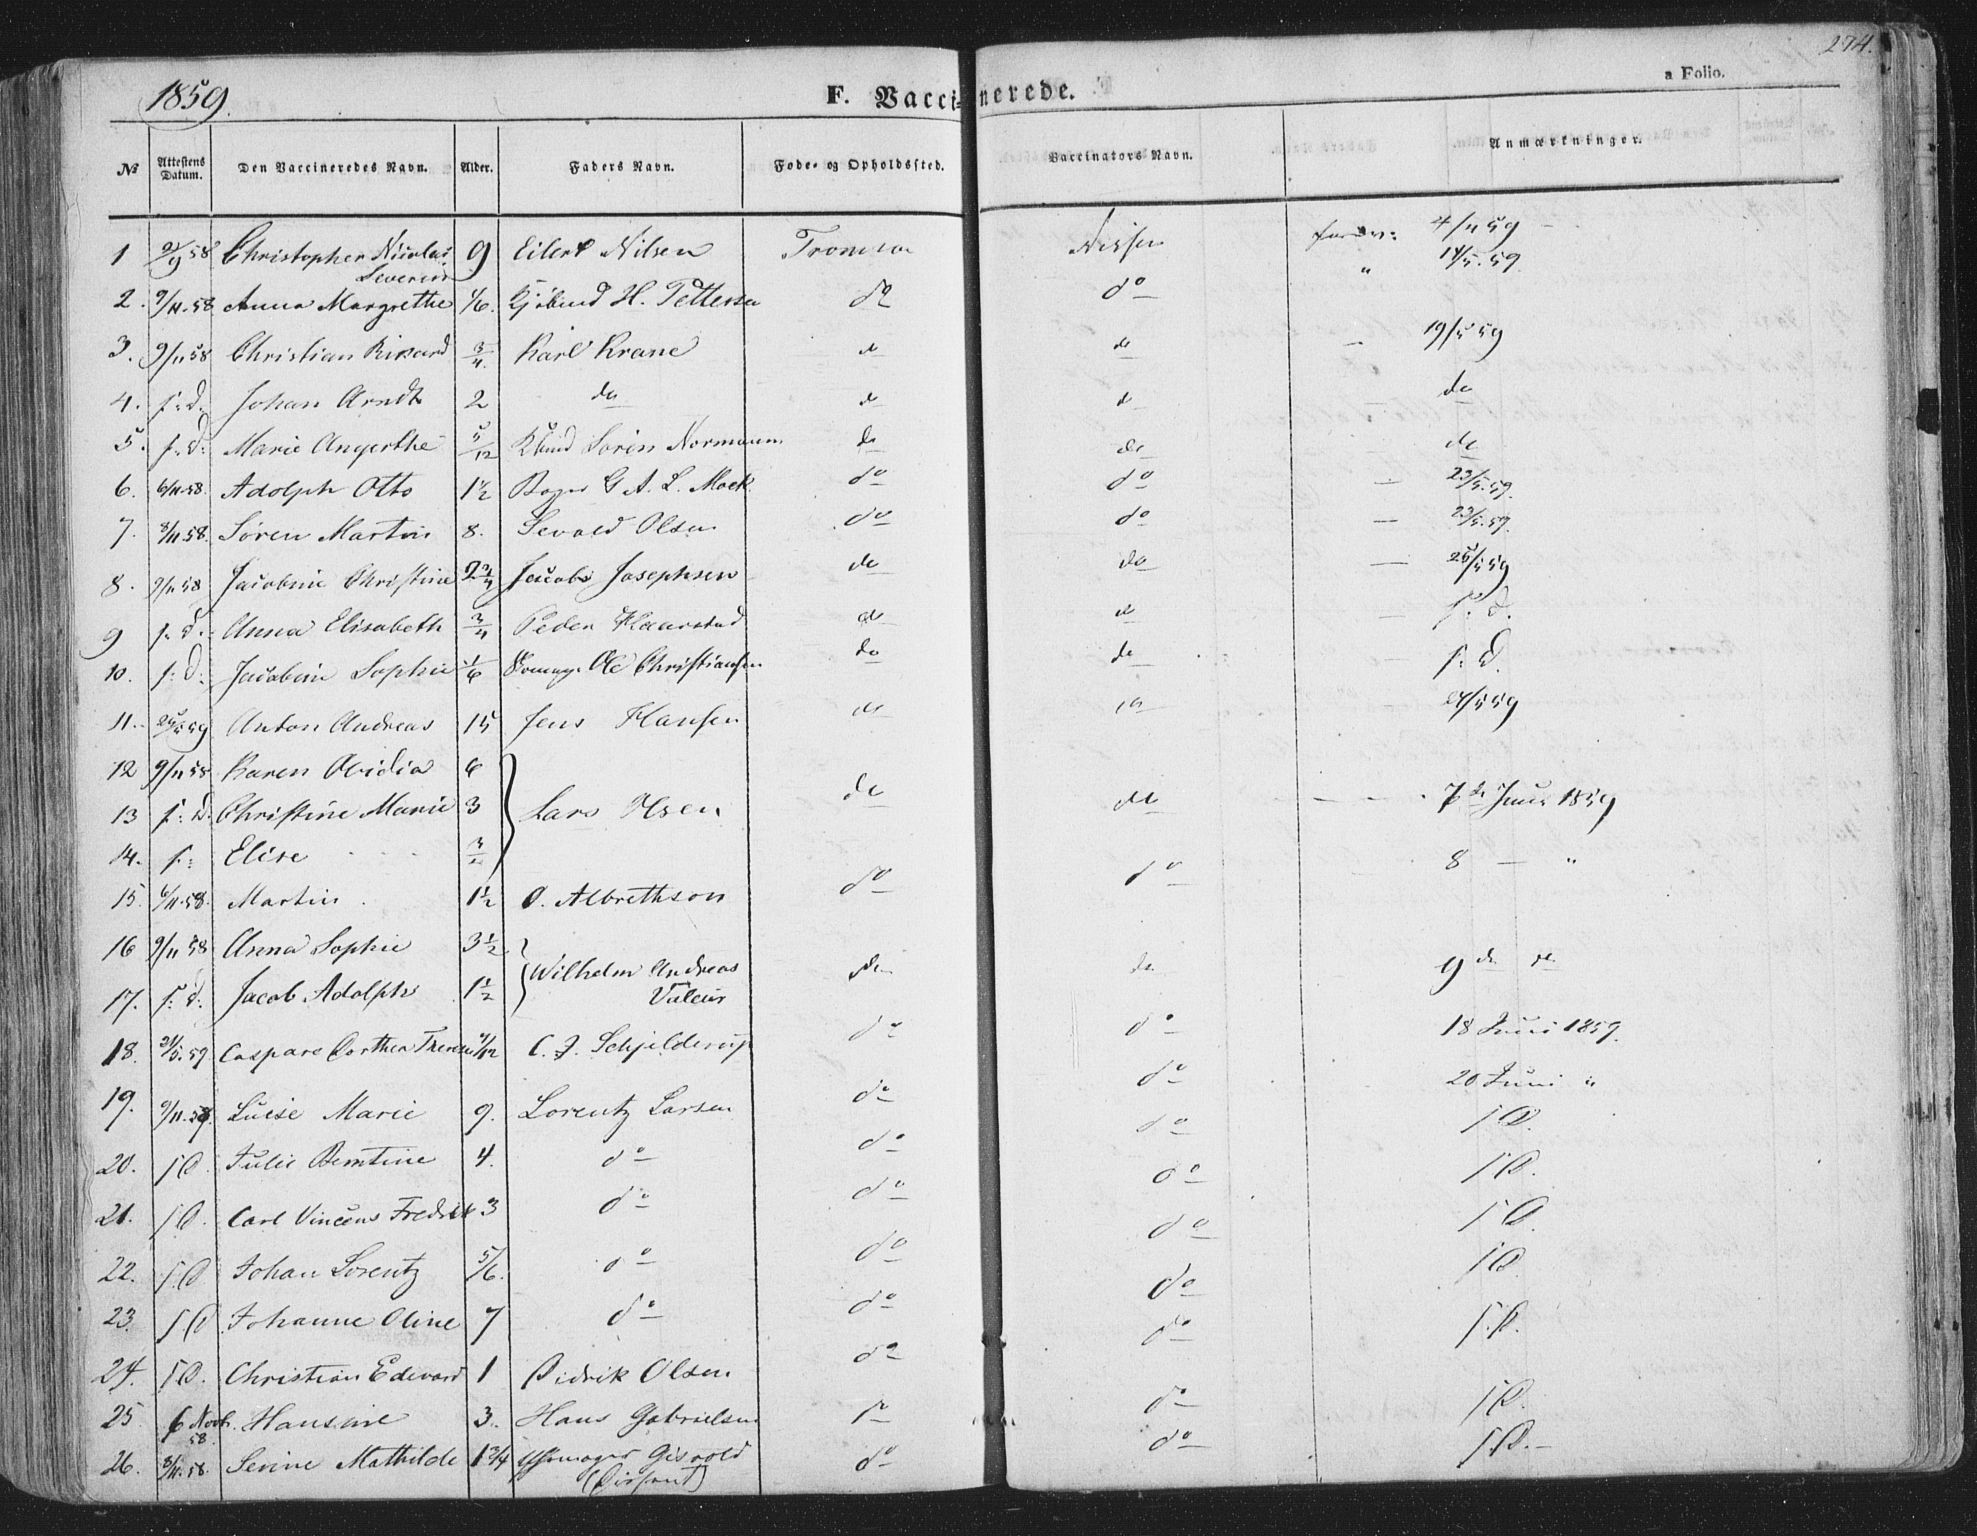 274.
1859.
F. Vaccinerede.
a Folio.
№ Attestens Datum. Den Vaccineredes Navn. Alder. Faders Navn. Føde- og Opholdssted. Vaccinators Navn. Anmærkninger.
1 9/9 58 Christopher Nicolai Severin 9 Eilert Nilsen Tromsø Nissen 4/11 59 –
" 14/5. 59.
2. 9/11.58 Anna Margrethe 1/6. H. Pettersen do do
3. 9/11 58 Christian Rikard 3/4. Karl Krane do do – 19/5 59
4. s: d. Johan Arndt 2 do do do do
5. s: d: Marie Angerthe 5/12 Sørin Normann do do do
6. 6/11.58. Adolph Otto 1½ G A. L. Mack do do – 23/5.59.
7. 3/11 58. Søren Martin 8. Sevald Olsen do do – 23/5.59.
8. 9/11 58 Jacobine Christine 2¾ Jacob Josephsen do do – 25/5 59
9 s: d. Anna Elisabeth 3/4 Peder Kaarstad do do – s. d.
10. s: d: Jacobine Sophie 1/6 Ole Christiansen do do – s: d.
11. 24/5 59 Anton Andreas 15 Jens Hansen do do 24/5 59
12 9/11 58 Karen Ovidia 6
13 s: d. Christine Marie 3 Lars Olsen do do 7de Juni 1859
14. s: Elise
15. 6/11.58. Martin. 1½ O. Albrethson do do 8 – "
16 9/11 58 Anna Sophie 3½
17. s: d: Jacob Adolph 1½ Wilhelm Andreas Valeur do do 9de do
18. 24/5.59 Caspara Dorthea /12 C. J. Schjelderup do do 18 Juni 1859.
19. 9/11.58. Luise Marie 9. Lorentz Larsen do do 20 Juni "
20. s D. Julie Berntine 4. do do do s D.
21. s D. Carl Vincens Fredrik 3 do do do s D.
22. s D Johan Lorentz 5/6. do do do s D
23. s D Johanne Oline 7 do do do s D
24. s D. Christian Edevard 1 Didrik Olsen do do s. D.
25 6 Novb. 58. Hansine 3. Hans Gabrielsen do do s D.
26. 3/11.58. Sevine Mathilde 1¾ Gisvold (Dissent) do do s D. –